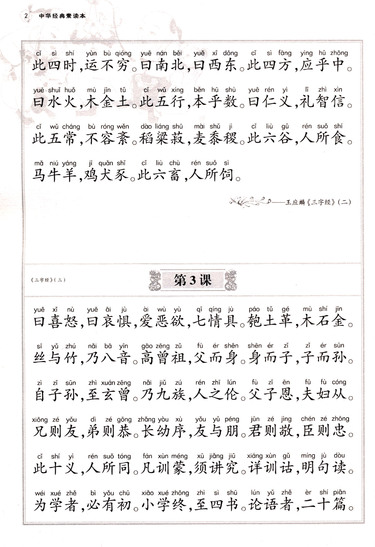 2 中华经典素读本
cǐ sì shí yùn bù qióng yuē nán běi yuē xī dōng cǐ sì fāng yìng hū zhōng
此四时,运不穷。曰南北,曰西东。此四方,应乎中。
yuē shuǐ huǒ mù jīn tǔ cǐ wǔ xíng běn hū shù yuē rén yì lǐ zhì xìn
曰水火,木金土。此五行,本乎数。曰仁义,礼智信。
cǐ wǔ cháng bù róng wěn dào liáng shū mài shǔ jì cǐ liù gǔ rén suǒ shí
此五常,不容紊。稻粱菽,麦黍稷。此六谷,人所食。
mǎ niú yáng jī quǎn shǐ cǐ liù chù rén suǒ sì
马牛羊,鸡犬豕。此六畜,人所饲。
——王应麟《三字经》(二)
第3课
《三字经》(三)
yuē xǐ nù yuē āi jù ài wù yù qī qíng jù páo tǔ gé mù shí jīn
曰喜怒,曰哀惧,爱恶欲,七情具。匏土革,木石金。
sī yǔ zhú nǎi bā yīn gāo zēng zǔ fù ér shēn shēn ér zǐ zǐ ér sūn
丝与竹,乃八音。高曾祖,父而身。身而子,子而孙。
zì zǐ sūn zhì xuán zēng nǎi jiǔ zú rén zhī lún fù zǐ ēn fū fù cóng
自子孙,至玄曾。乃九族,人之伦。父子恩,夫妇从。
xiōng zé yǒu dì zé gōng zhǎng yòu xù yǒu yǔ péng jūn zé jìng chén zé zhōng
兄则友,弟则恭。长幼序,友与朋。君则敬,臣则忠。
cǐ shí yì rén suǒ tóng fán xùn méng xū jiǎng jiū xiáng xùn gǔ míng jù dòu
此十义,人所同。凡训蒙,须讲究。详训诂,明句读。
wéi xué zhě bì yǒu chū xiǎo xué zhōng zhì sì shū lún yǔ zhě èr shí piān
为学者,必有初。小学终,至四书。论语者,二十篇。